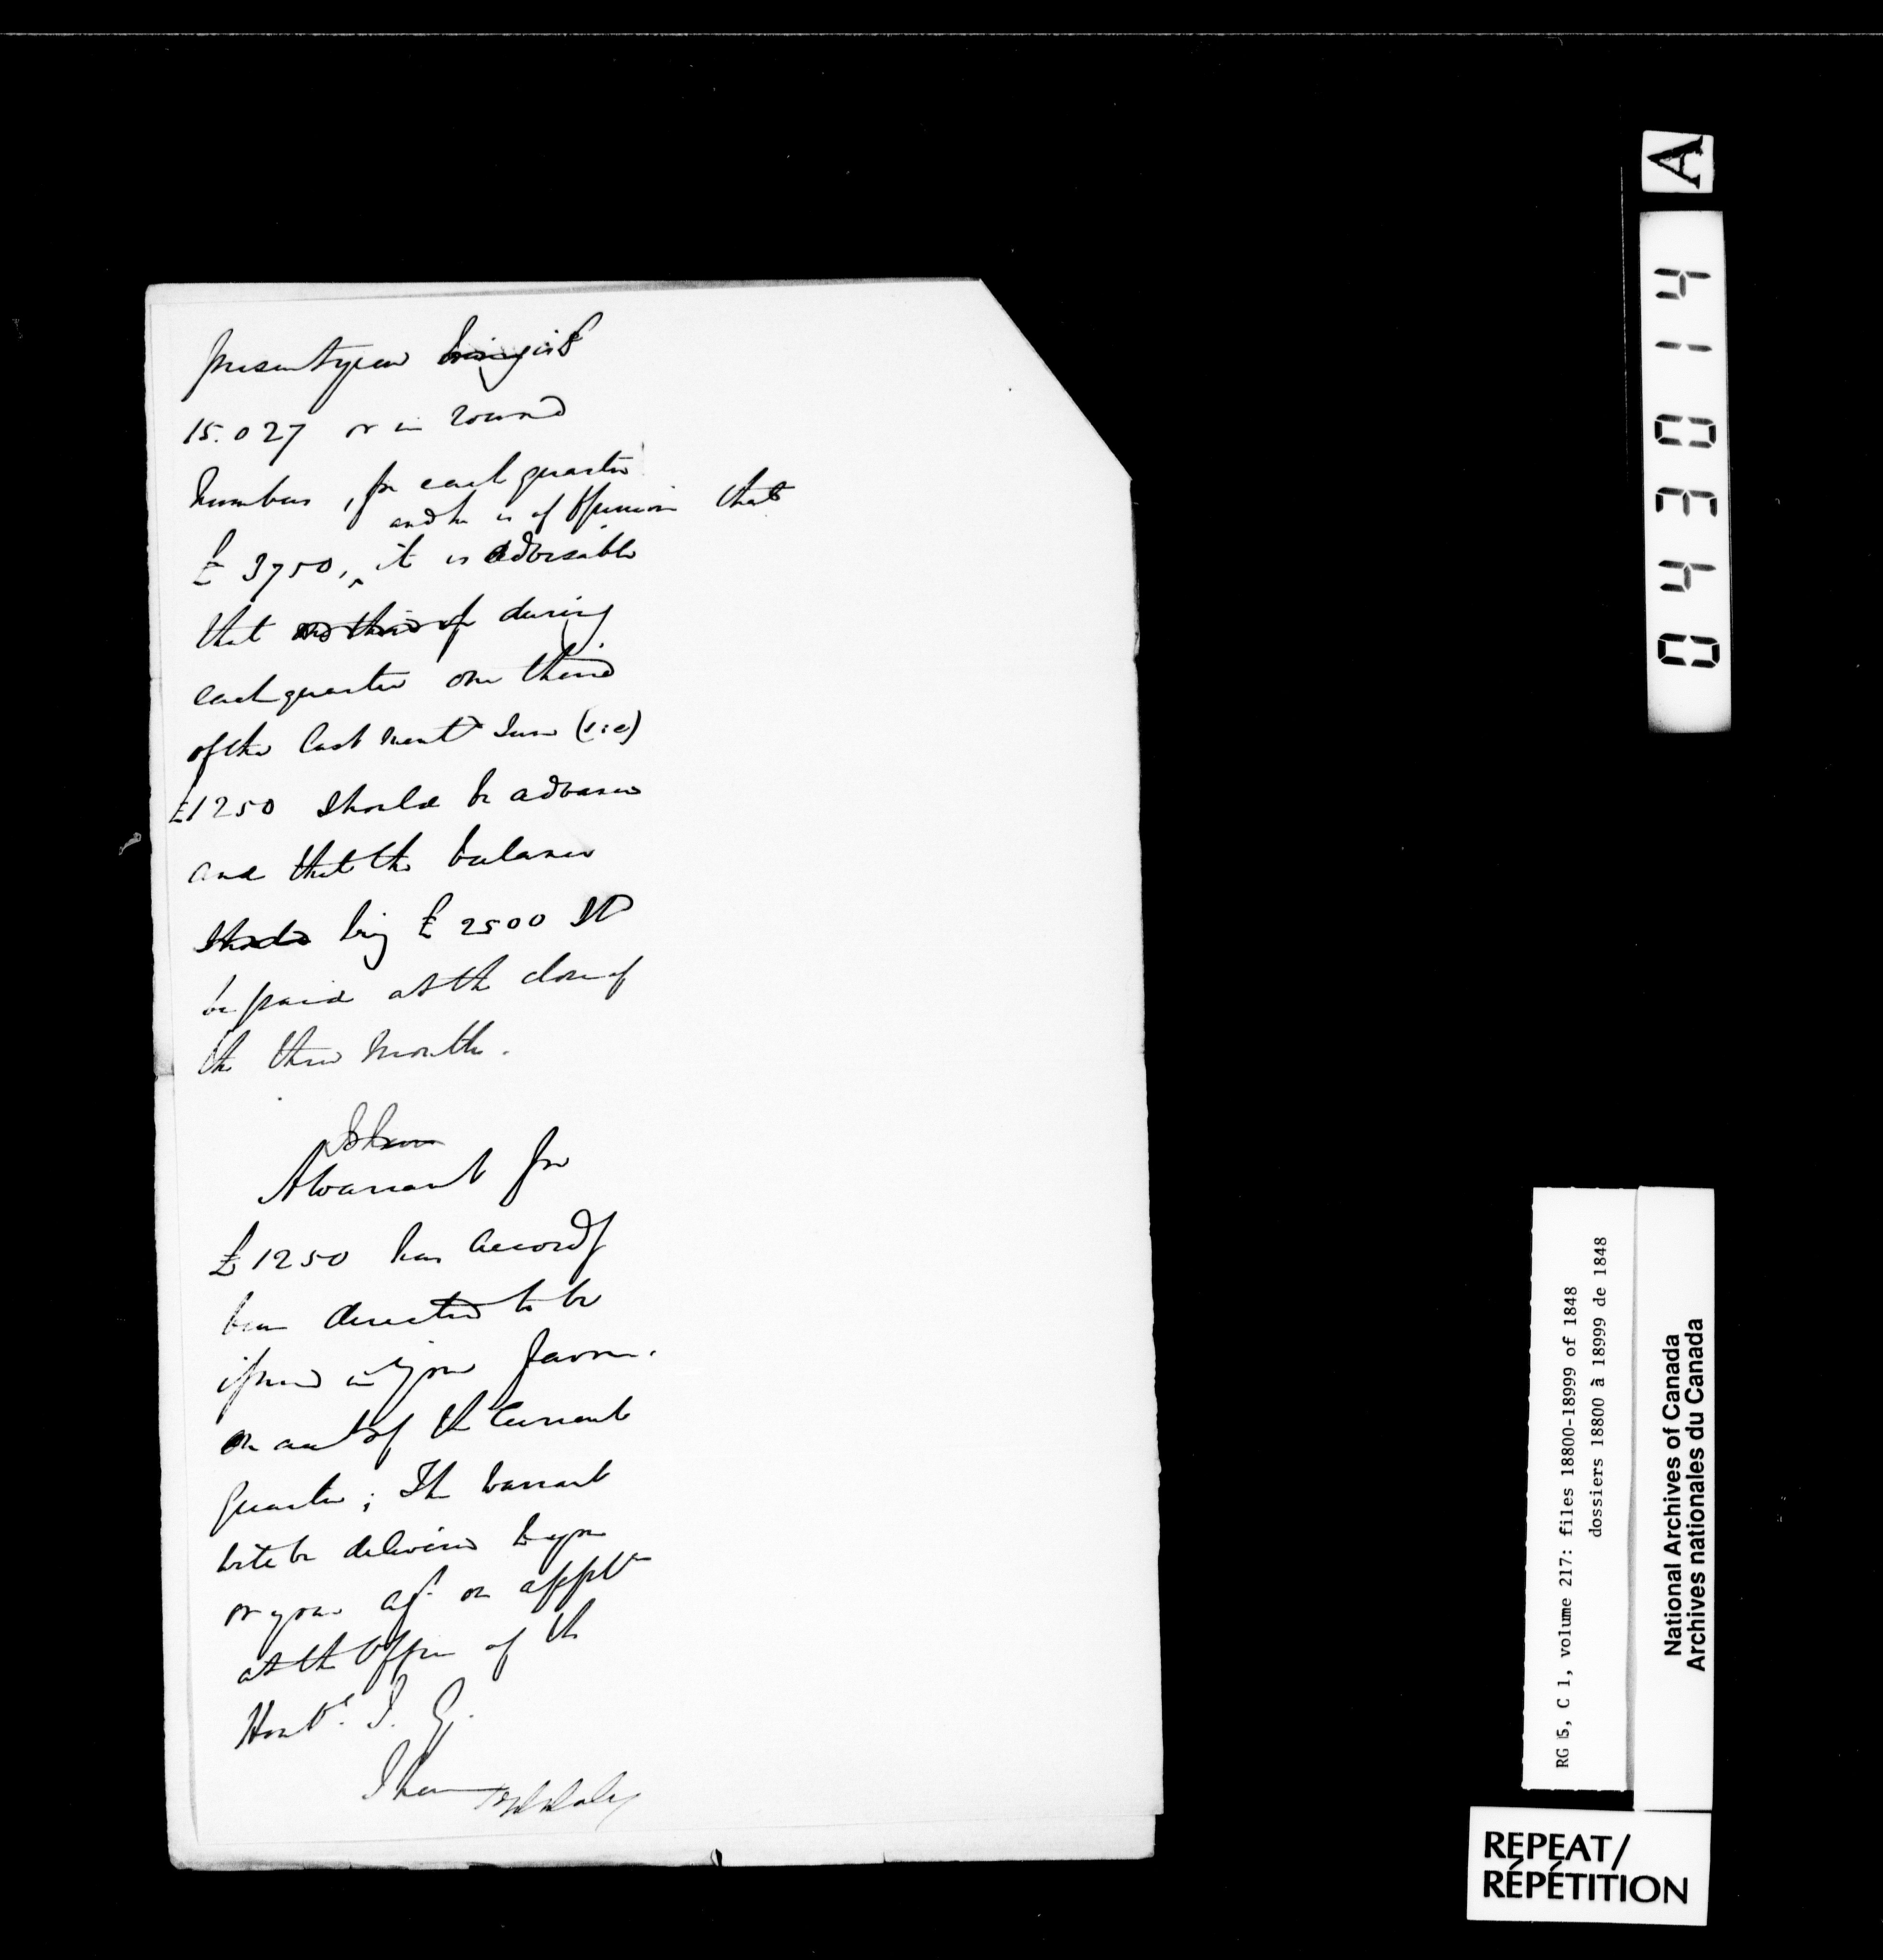 present year being is £
15.027 or in round
numbers, for each quarter
and he is of opinion that
£ 3750, ^ it is advisable
that one third of during
each quarter one third
of the last ment^d sum (i:e)
£1250 should be advanced
and that the balance
should being £ 2500 Sh^d
be paid at the close of
the three months.
I have
A Warrant for
£1250 has accord^y
been directed to be
issued in your favor.
on acct of the Current
quarter; The warrant
will be delivered to you
or your ag^t on appl^n
at the Office of the
Hon^ble I. G.
I have
D Daly
A
034014
RG 5, C 1, volume 217: files 18800-18999 of 1848
dossiers 18800 à 18999 de 1848
National Archives of Canada
Archives nationales du Canada
REPEAT/
RÉPÉTITION